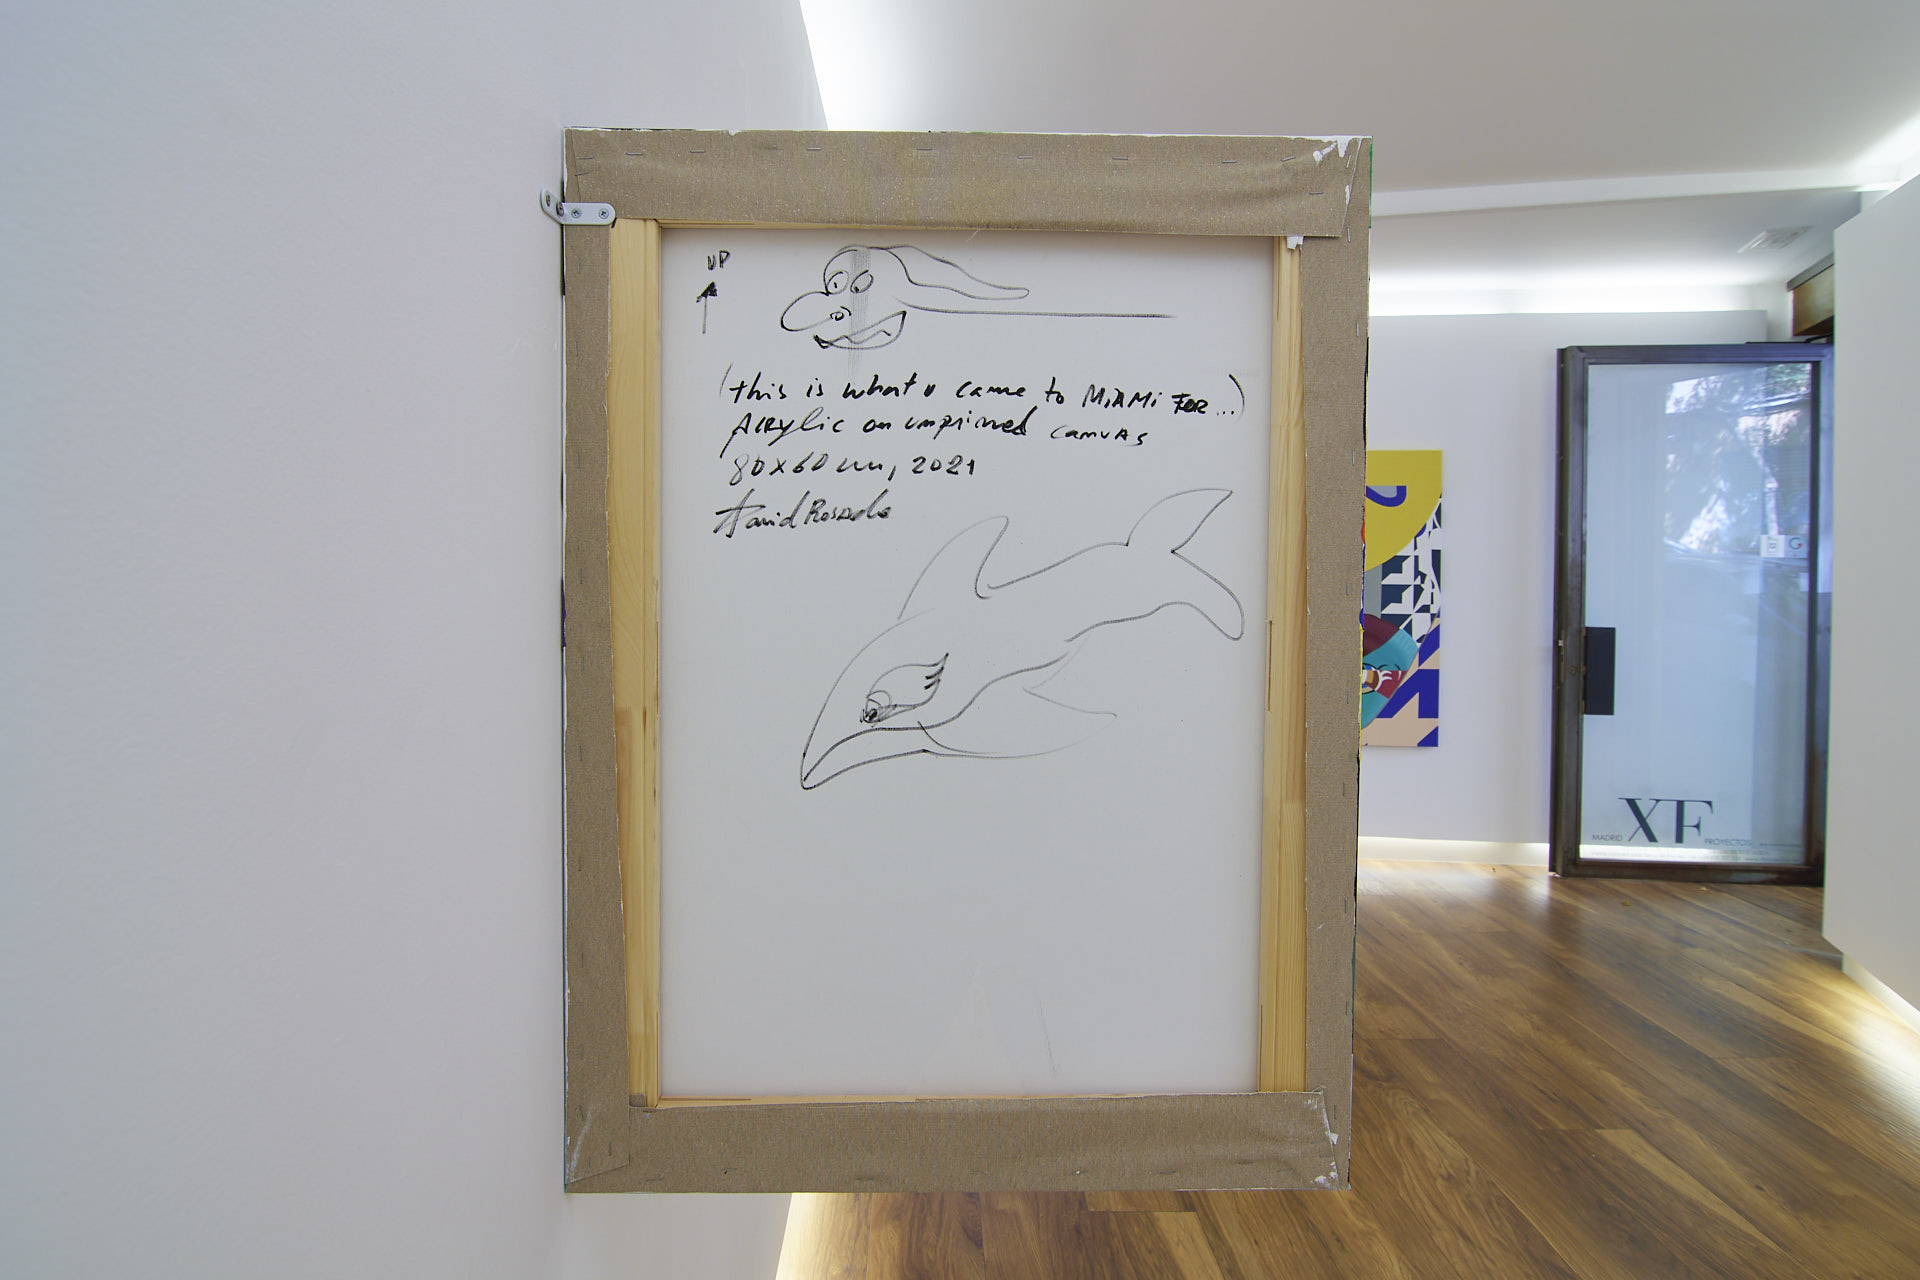 UP
(this is what u came to MiAMi FOR...)
Acrylic on unprimed canvas
80x60 cm, 2021
David Rosado
XF
MADRID PROYECTOS
G